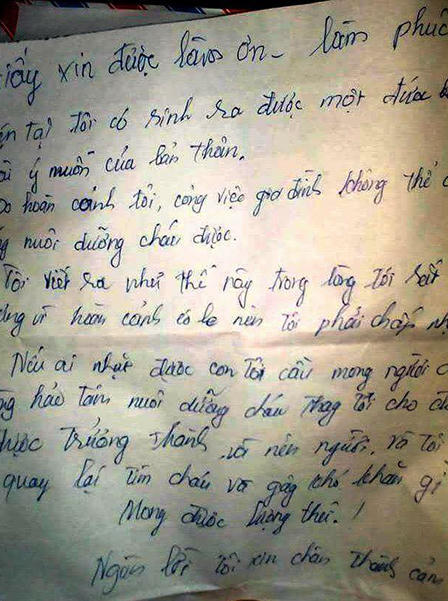 Giấy xin được làm ơn - làm phúc
tại tôi có sinh ra được một đứa
ý muốn của bản thân.
hoàn cảnh tôi, công việc gia đình không thể
nuôi dưỡng cháu được.
Tôi viết ra như thế này trong lòng tôi rất
vì hoàn cảnh éo le nên tôi phải chấp
Nếu ai nhặt được con tôi cầu mong người
hảo tâm nuôi dưỡng cháu thay tôi cho
được trưởng thành và nên người. và tôi
quay lại tìm cháu và gây khó khăn gì
Mong được lượng thứ.!
Ngàn lời tôi xin chân thành cảm